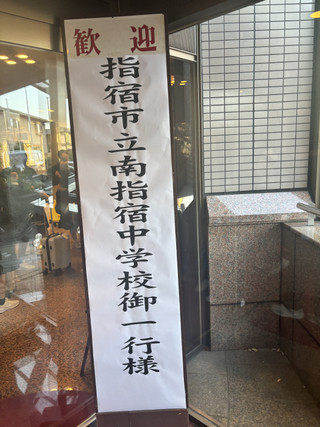 歓迎
指宿市立南指宿中学校御一行様